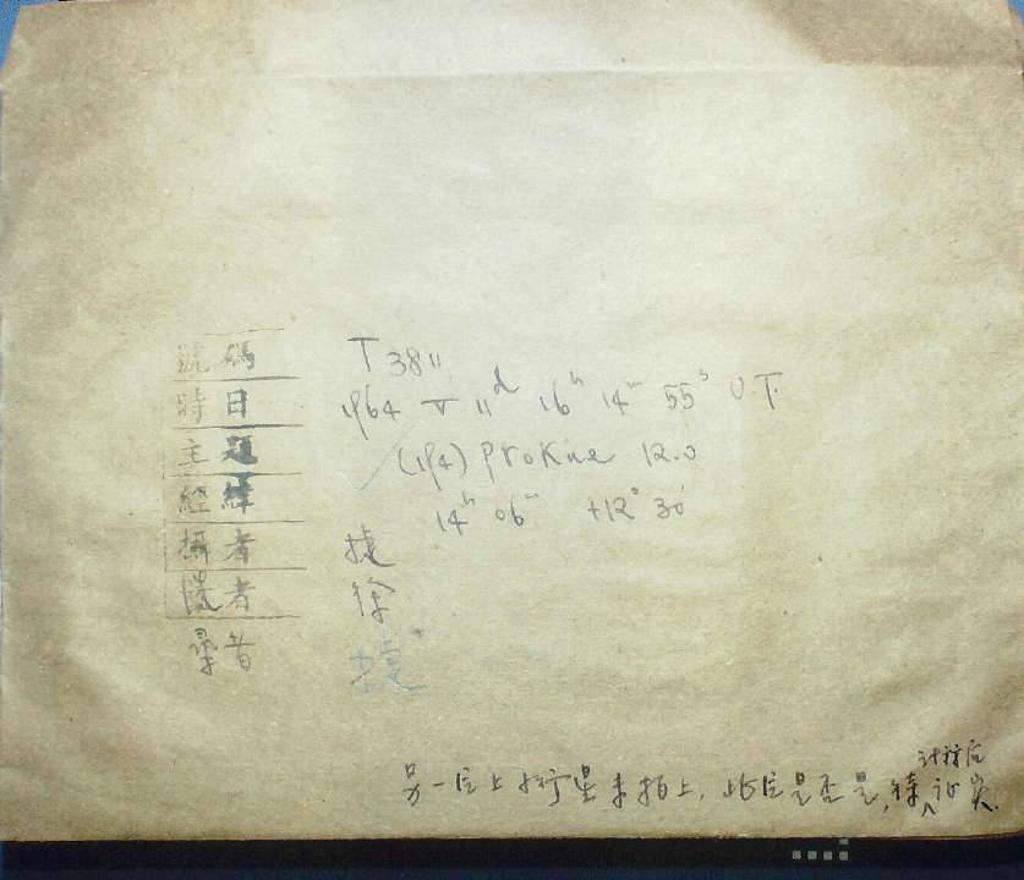 號碼 T 3811
時日 1964 V 11ᵈ 16ʰ 14ᵐ 55ˢ U.T.
主題 (194) Prokne 12.0
經緯 14ʰ 06ᵐ +12° 30′
攝者 捷
者 徐
尋者 捷
另一片上小行星未拍上,此片是否是,待計稀后证实.